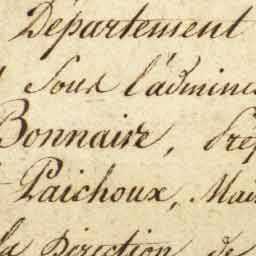 Département
Sous l'adminis
Bonnaire, Pré
Paichoux, Mai
la Direction de